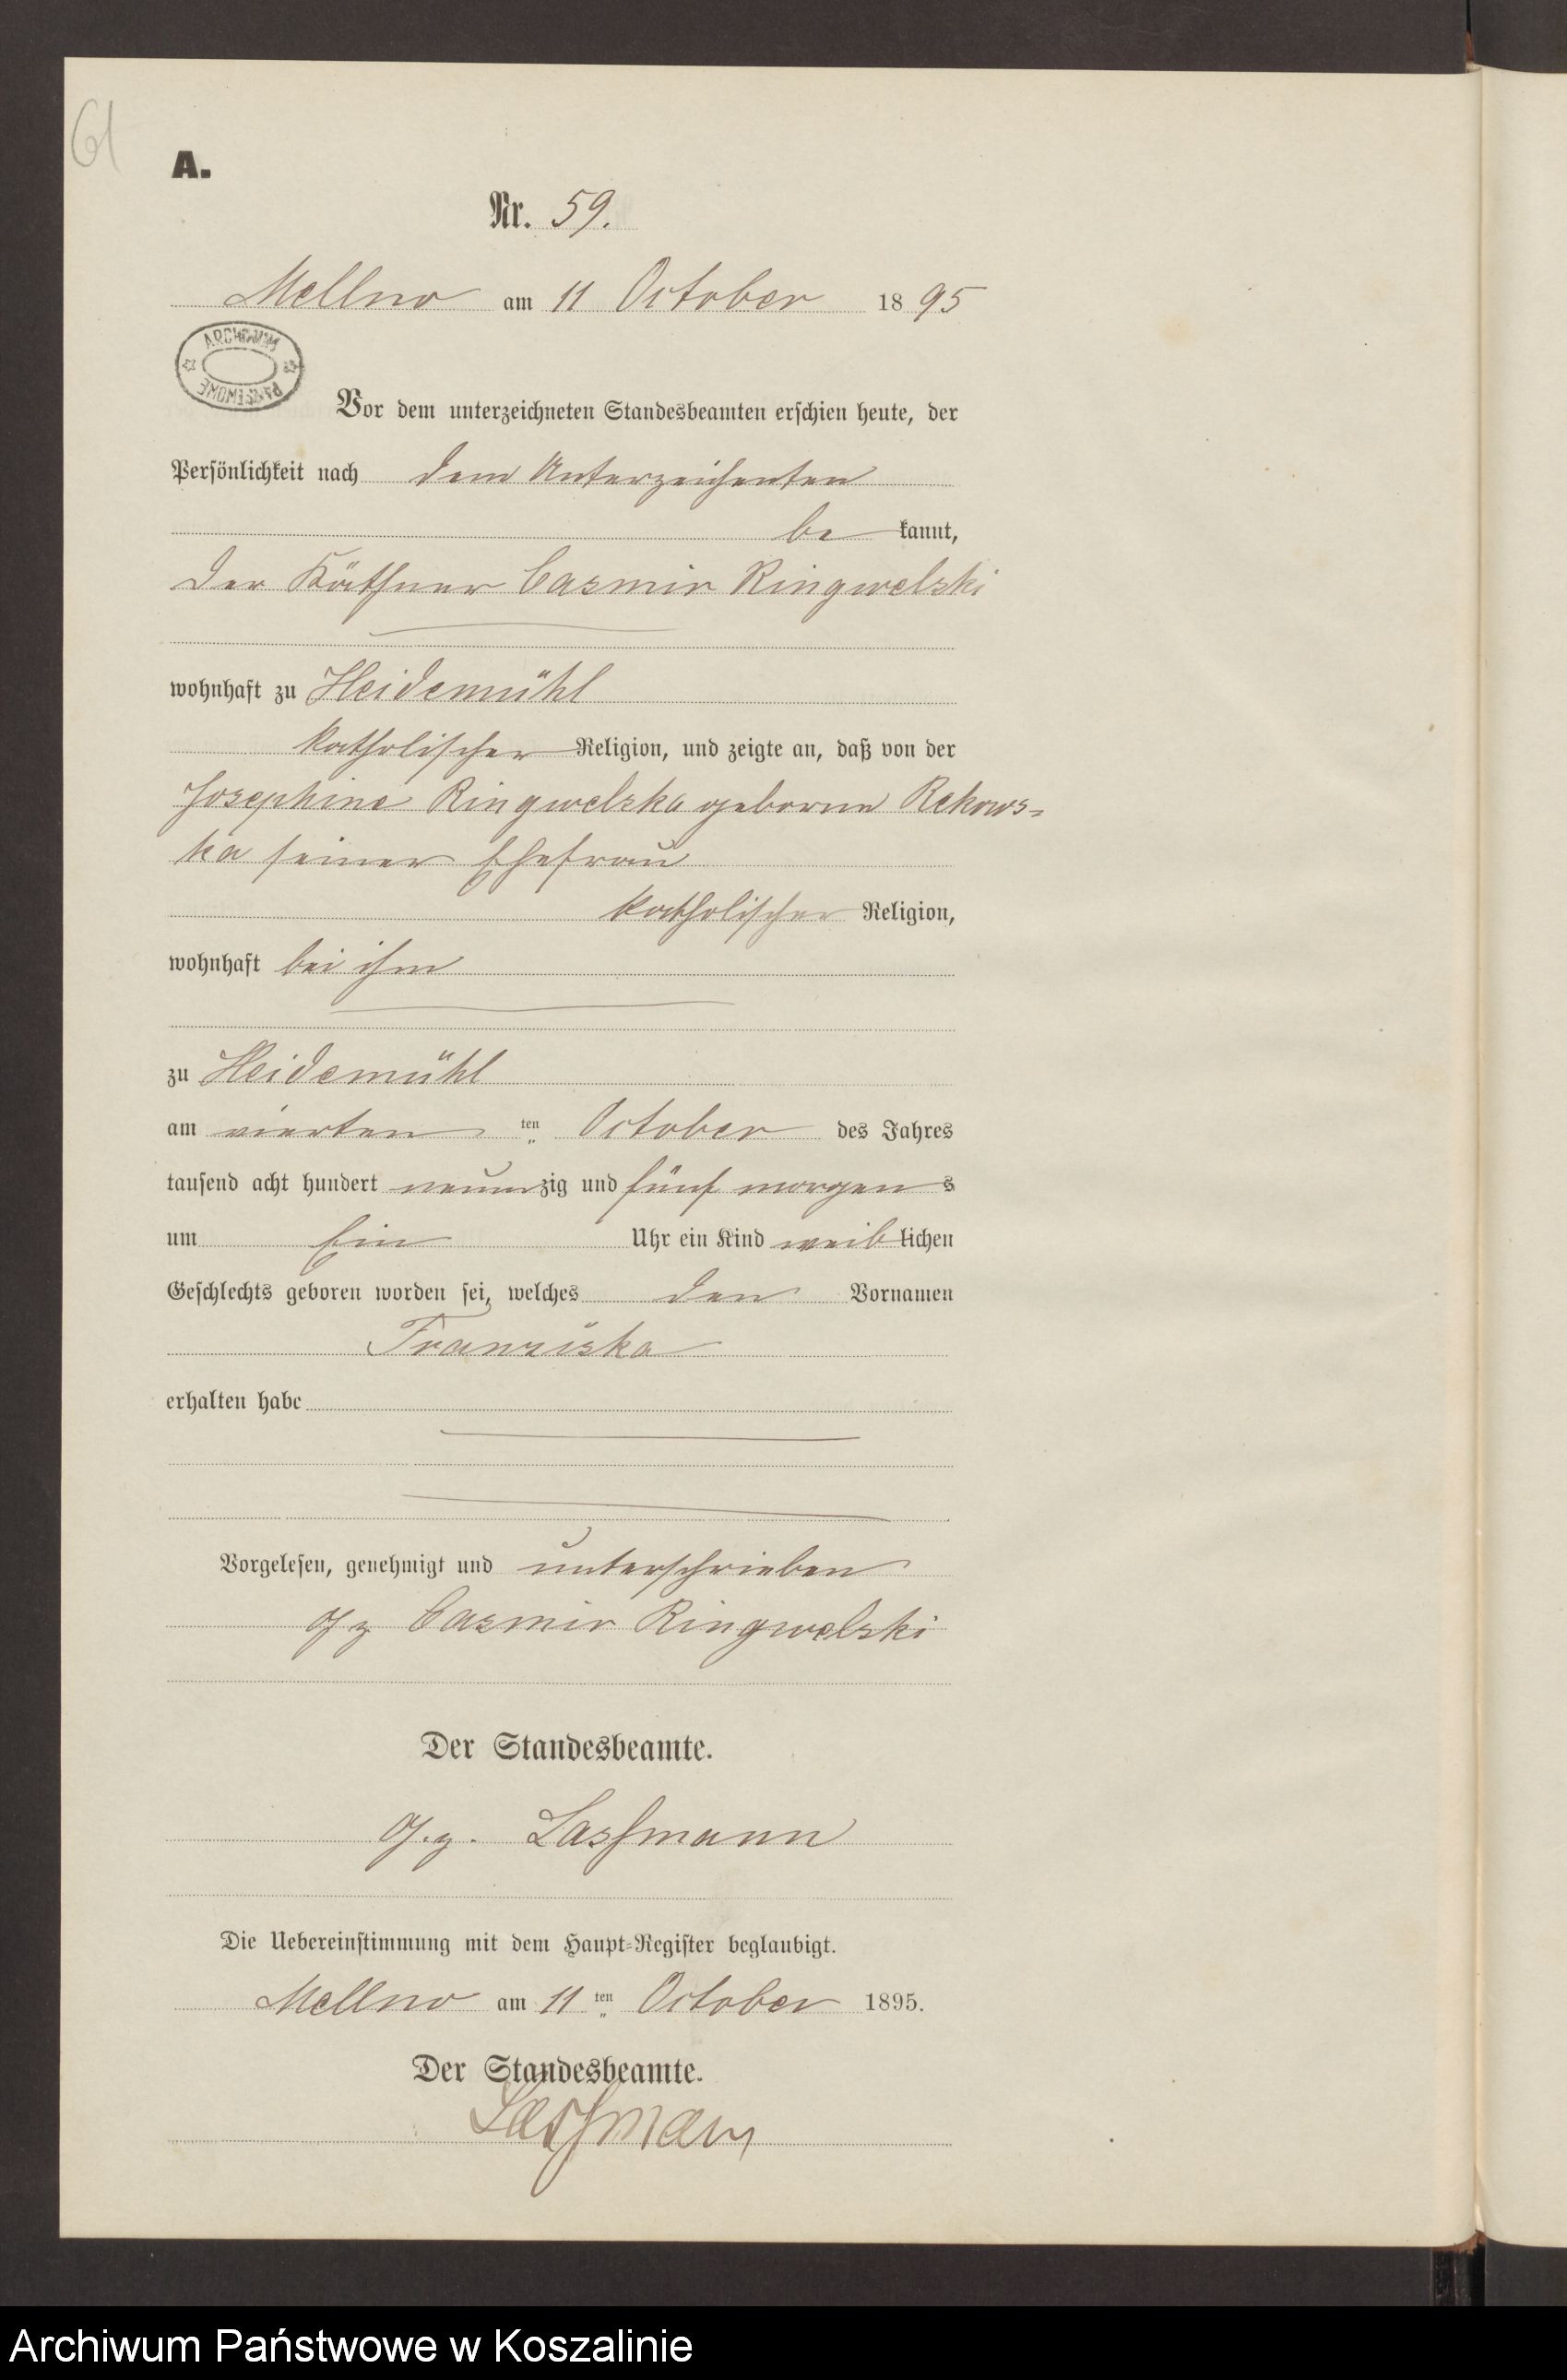 61
A.
Nr. 59.
Mellno am 11 October 1895
ARCHIWUM
PAŃSTWOWE
Vor dem unterzeichneten Standesbeamten erschien heute, der
Persönlichkeit nach dem Unterzeichenten
be kannt,
der Käthner Casmir Ringwelski
wohnhaft zu Heidemühl
katholischer Religion, und zeigte an, daß von der
Josephine Ringwelska geborne Rekows=
ka seiner Ehefrau
katholischer Religion,
wohnhaft bei ihm
zu Heidemühl
am vierten ten October des Jahres
tausend acht hundert neunzig und fünf morgens
um Ein Uhr ein Kind weiblichen
Geschlechts geboren worden sei, welches den Vornamen
Franziska
erhalten habe
Vorgelesen, genehmigt und unterschrieben
gz Casmir Ringwelski
Der Standesbeamte.
g.z. Lassmann
Die Uebereinstimmung mit dem Haupt=Register beglaubigt.
Mellno am 11 ten October 1895.
Der Standesbeamte.
Lassmann
Archiwum Państwowe w Koszalinie